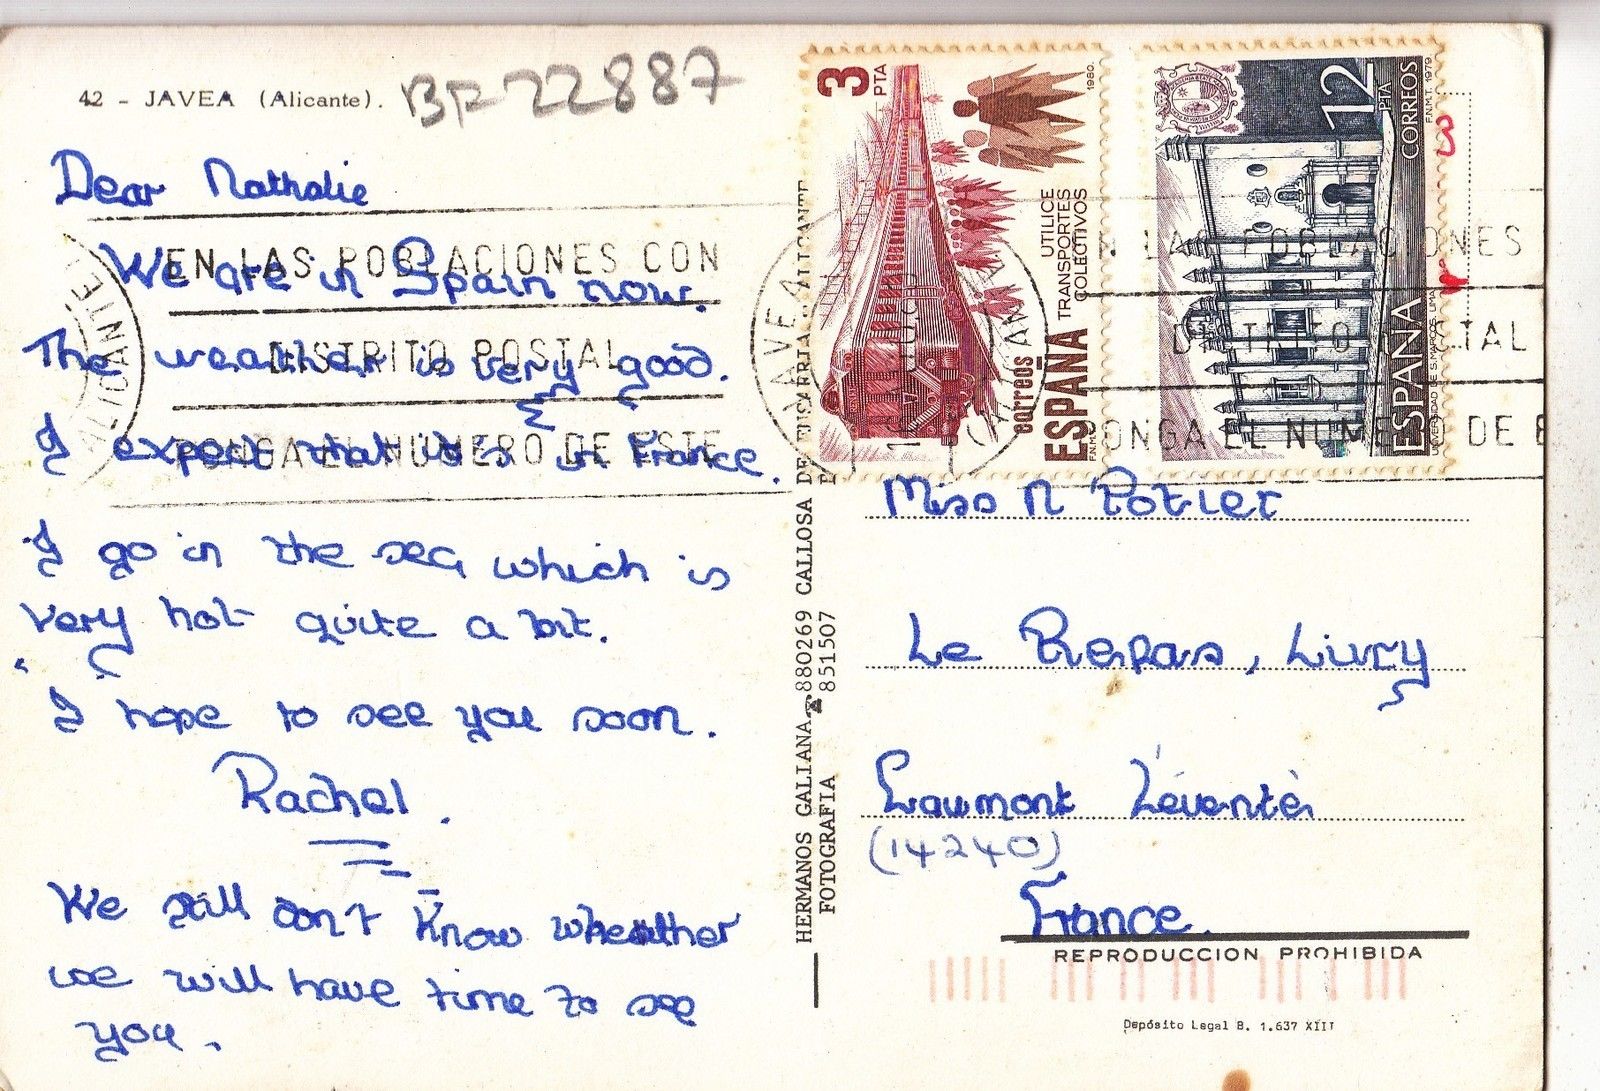 42 - JAVEA (Alicante).
BF 22887
Dear Nathalie
We are in Spain now.
The weather is very good.
I expect that it is in France.
I go in the sea which is
very hot quite a bit.
I hope to see you soon.
Rachel.
We still don't know wheather
we will have time to see
you.
EN LAS POBLACIONES CON
DISTRITO POSTAL
PONGA EL NUMERO DE ESTE
ALICANTE
HERMANOS GALIANA 880269 CALLOSA DE ENSARRIA ALICANTE
FOTOGRAFIA 851507
3 PTA
1980.
UTILICE
TRANSPORTES
COLECTIVOS
correos
ESPAÑA
12 PTA
CORREOS
F.N.M.T. 1979
ESPAÑA
UNIVERSIDAD DE S. MARCOS. LIMA
JAVEA
DISTRITO POSTAL
PONGA EL NUMERO DE E
3
Miss N Potier
Le Repas, Livry
Caumont L'éventè
(14240)
France.
REPRODUCCION PROHIBIDA
Depósito Legal B. 1.637 XIII